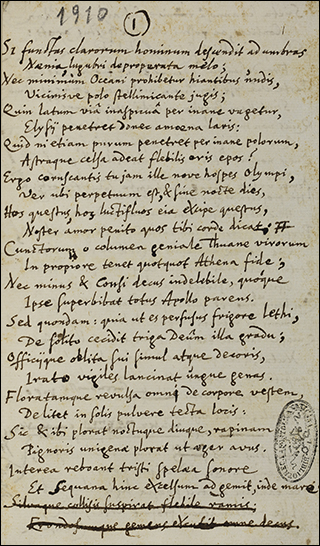 1910
1
Si functas clarorum hominum descendit ad umbras
Nænia lugubri deproperata melo;
Nec minimum Oceani prohibetur hiantibus undis,
Vicinisve polo stellimicante jugis;
Quin latum viâ inaspicuâ per inane vagetur,
Elysij penetret donec amœna laris:
Quid m̃ etiam purum penetret per inane polorum,
Astraque celsa adeat flebilis oris epos?
Ergo coruscantis tu jam ille nove hospes Olympi,
Ver ubi perpetuum est, & sine nocte dies,
Hos questus, hoz luctifluos eia excipe questus,
Noster amor penito quos tibi corde dicat;
Cunctorum o columen geniale Thuane virorum
In propiore tenet quotquot Athena fide;
Nec minus & Consi decus indelibile, quoque
Ipse superbibat totus Apollo parens.
Sed quondam: quia ut es perfusus frigore lethi,
De solito cecidit triga Deûm illa gradu;
Officijque oblita sui simul atque decoris,
Irato vigiles lancinat ungue genas.
Floratamque revulsa omni de corpore vestem
Delitet in solis pulvere tecta locis:
Sic & ibi plorat noctuque diuque, rapinam
Pignoris unigenæ plorat ut æger avus.
Interea reboant tristi spelæa sonore
Et Sequana hinc excelsum ad gemit, inde mare
Silvaque callisij suspirat flebile ramis;
gemens excutit omne decus.